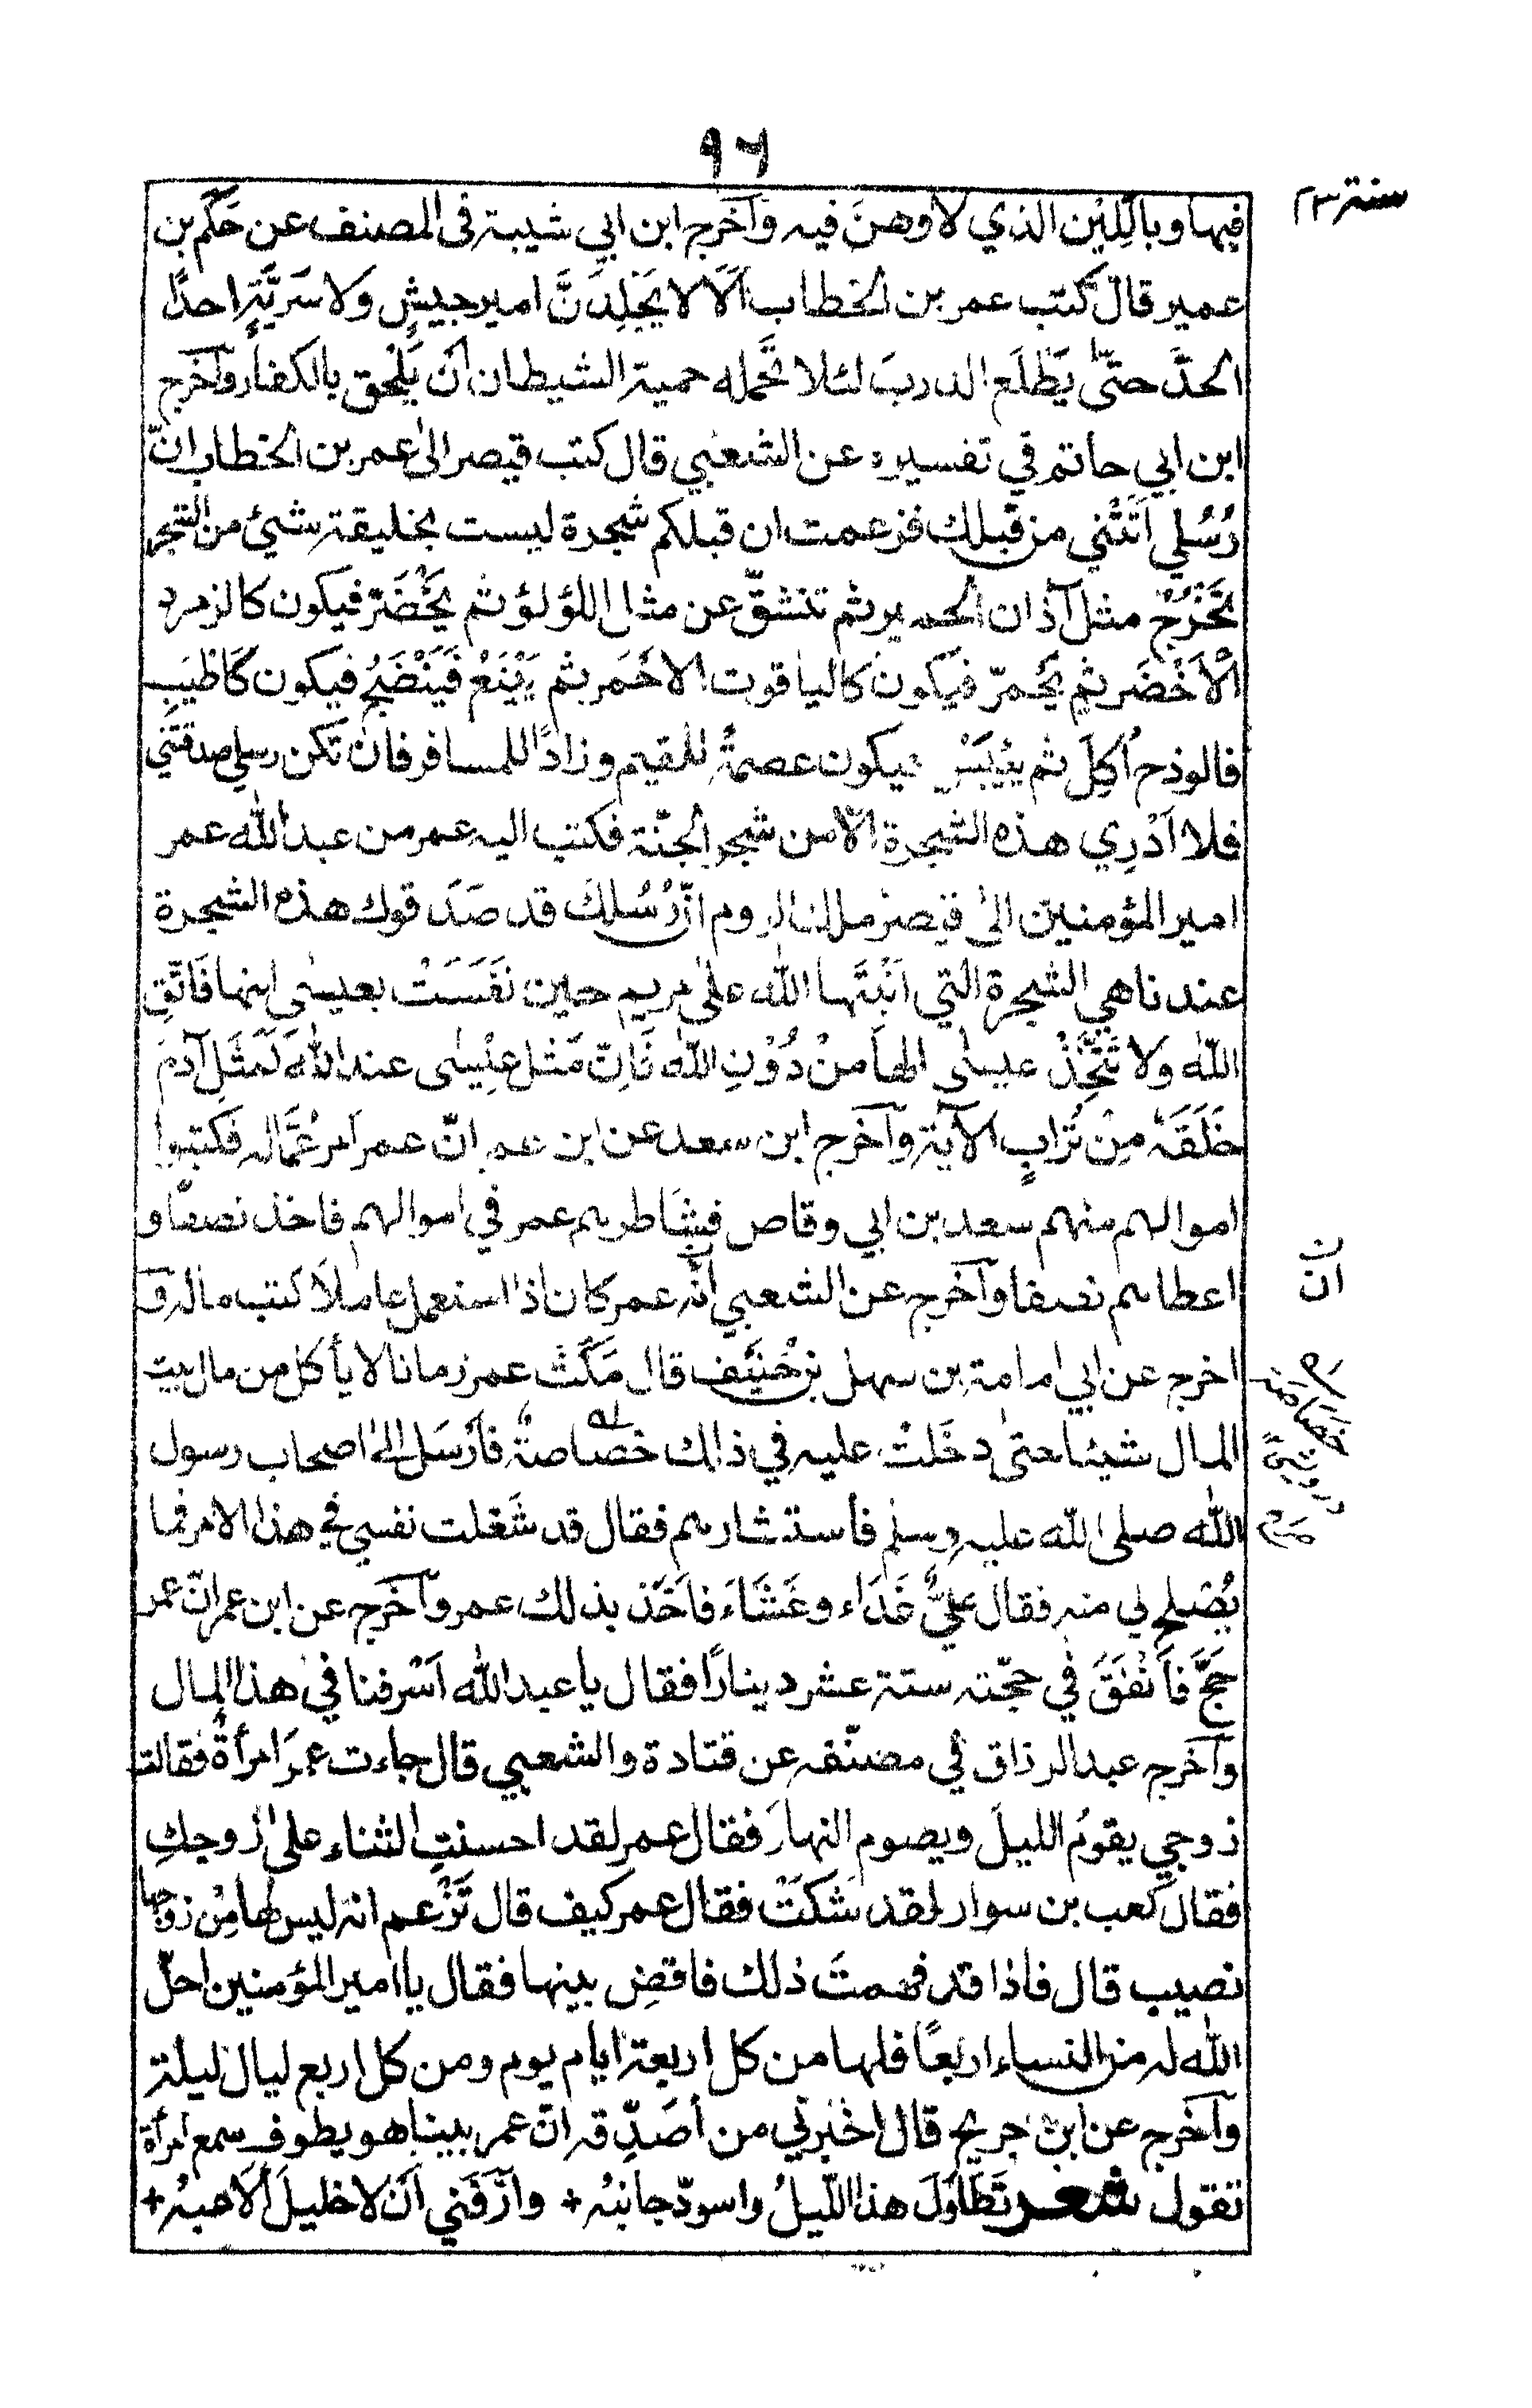 ٩٦
سنة ٢٣
فيها وبالِلّيْن الذي لا وهنَ فيه وآخرج ابن ابي شيبة فى المصنف عن حَكَم بن
عمير قال كتب عمر بن الخطاب اَلَا لا يَجْلِدَنَّ امير جيشٍ ولا سَرِيَّةٍ احداً
الحدَّ حتّى يَطْلَع الدربَ لئلا تَحمله حمية الشيطان اَنْ يَلْحق بالكفار وآخرج
ابن ابي حاتم في تفسيره عن الشعبي قال كتب قيصر الىٰ عمر بن الخطاب انّ
رُسُلي اَتَتْني من قبلك فزعمت ان قبلكم شجرة ليست بخليقة شيئ من الشجر
تَخْرُجُ مثل آذان الحمير ثم تنشقّ عن مثل اللؤلؤ ثم يَخْضَرّ فيكون كالزمرد
الْاَخْضَر ثم يَحْمرّ فيكون كالياقوت الاَحْمَر ثم يَيْنَعُ فَيَنْضَجُ فيكون كَاَطْيَبِ
فالوذج اُكِلَ ثم يَيْبَسُ فيكون عصمةً للمقيم وزاداً للمسافر فان تكن رسلي صدقَتْني
فلا اَدْرِي هذه الشجرة الّا من شجر الجنّة فكتب اليه عمر من عبد اللّٰه عمر
امير المؤمنين الىٰ قيصر ملك الروم انّ رُسُلكَ قد صَدَ قوك هذه الشجرة
عندنا هي الشجرة التي اَنْبَتَها اللّٰه علىٰ مريم حين نَفَسَتْ بعيسٰى ابنها فَاتَّقِ
اللّٰه ولا تَتَّخِذْ عيسٰى الهاً منْ دُوْنِ اللّٰه فَاِنّ مَثَل عِيْسٰى عند اللّٰه كَمَثَلِ آدمَ
خَلَقَهٗ مِنْ تُرَابٍ الآية وآخرج ابن سعد عن ابن عمر انّ عمر اَمر عُمَّاله فكتبوا
اموالهم منهم سعد بن ابي وقاص فشَاطرهم عمر في اموالهم فاخذ نصفا و
اعطاهم نصفا وآخرج عن الشعبي اَنّه عمر كان اذا استعمل عاملاً كتب ماله و
ان
اخرج عن ابي امامة بن سهل بن حُنَيْف قال مَكَثَ عمر زمانا لا يأكل من مال بيت
المال شيئا حتىٰ دخَلتْ عليه في ذالك خصاصةٌ فأَرْسَل الىٰ اصحاب رسول
اللّٰه صلى اللّٰه عليه وسلم فأستشارهم فقال قد شَغَلت نفسي في هذا الامر فما
يُصْلح لي منه فقال عليٌّ غَدَاء وعَشَاءَ فاَخَذ بذلك عمر وآخرج عن ابن عمر انّ عمر
حَجَّ فَاَنْفَقَ في حجّته ستة عشر ديناراً فقال يا عبد اللّٰه اَسْرفنا في هذا المال
وآخرج عبد الرزاق في مصنّفه عن قتادة والشعبي قال جاءت عمرَ امرأةٌ فقالت
زوجي يقومُ الليلَ ويصوم النهارَ فقال عمر لقد احسنتِ الثناء علىٰ زوجكِ
فقال كعب بن سوار لقد شَكَتْ فقال عمر كيف قال تَزْعم انه ليس لها مِنْ زوجها
نصيب قال فاذا قد فهمتَ ذلك فاقضِ بينها فقال يا امير المؤمنين احلّ
اللّٰه له من النساء اربَعًا فلها من كل اربعة ايام يوم ومن كل اربع ليال ليلة
وآخرج عن ابن جريج قال اخْبرني من أُصَدِّقه انّ عمر بينا هو يطوف سمع امرأة
تقول شعر تَطَاوَلَ هذا اللّيلُ واسودّ جانبُه + وارَّقَني اَنْ لا خليلَ اُلاعبهُ +